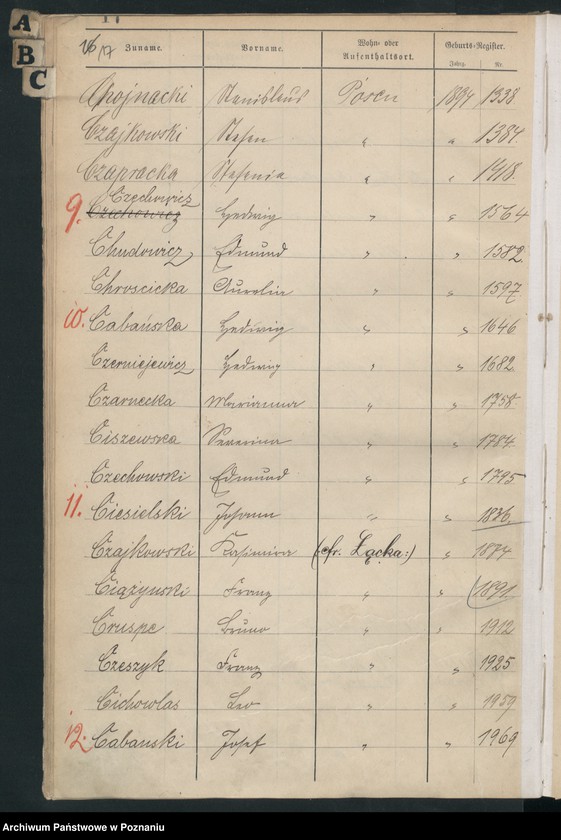 17
A
B
C
16/17
Zuname. Vorname. Wohn- oder Aufenthaltsort. Geburts-Register.
Jahrg. Nr.
Chojnacki Stanislaus Posen 1894 1338
Czajkowski Stefan " " 1384
Czapracka Stefania " " 1418.
9. Czechowicz
Czechowicz Hedwig " " 1564
Chudowicz Edmund " " 1582
Chroscicka Aurelia " " 1597
10. Cabańska Hedwig " " 1646
Czerniejewicz Hedwig " " 1682
Czarnecka Marianna " " 1758
Ciszewska Severina " " 1784
Czechowski Edmund " " 1795
11. Ciesielski Johann " " 1836.
Czajkowski Kasimira (cfr. Łącka:) " 1874
Ciążynski Franz " " (1891.
Cruspe Bruno " " 1912
Czeszyk Franz " " 1925
Cichowlas Leo " " 1959
12. Cabanski Josef " " 1969
Archiwum Państwowe w Poznaniu